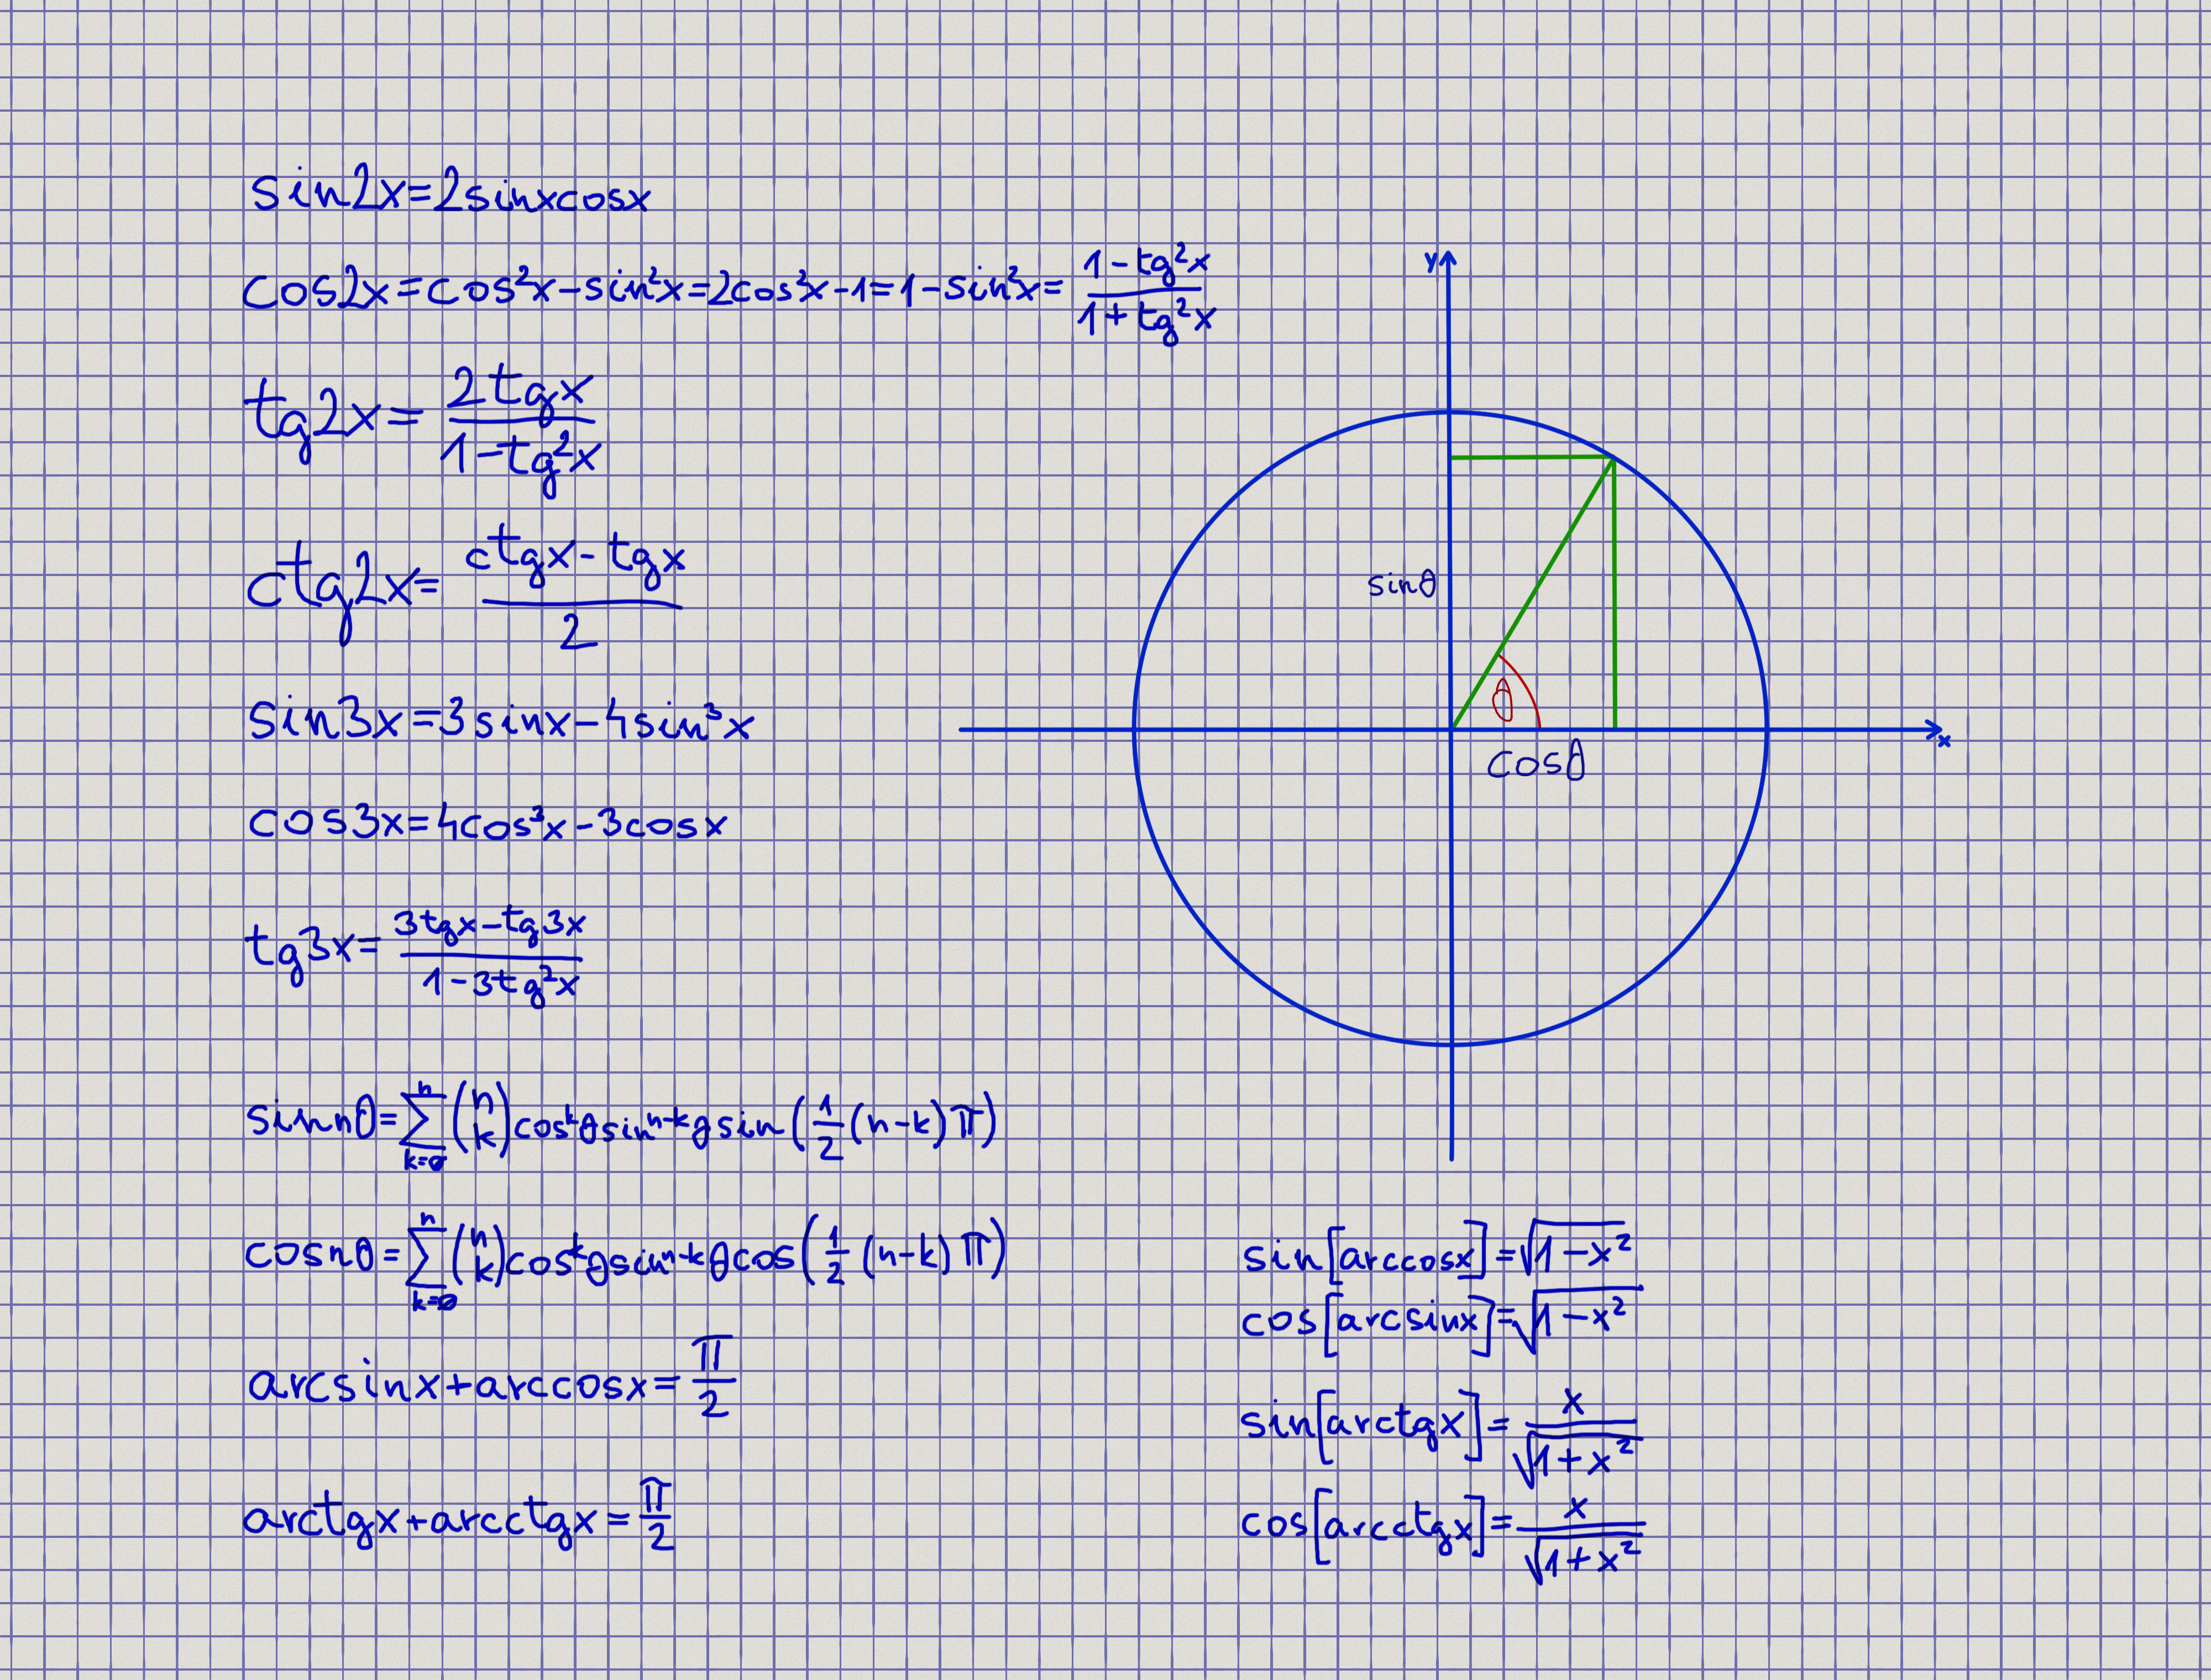 sin2x=2sinxcosx
cos2x=cos²x-sin²x=2cos²x-1=1-sin²x=(1-tg²x)/(1+tg²x)
tg2x=(2tgx)/(1-tg²x)
ctg2x=(ctgx-tgx)/2
sin3x=3sinx-4sin³x
cos3x=4cos³x-3cosx
tg3x=(3tgx-tg3x)/(1-3tg²x)
sinnθ=∑_{k=0}^{n}(n k)cos^kθsin^{n-k}θsin(1/2(n-k)π)
cosnθ=∑_{k=0}^{n}(n k)cos^kθsin^{n-k}θcos(1/2(n-k)π)
arcsinx+arccosx=π/2
arctgx+arcctgx=π/2
y
sinθ
θ
x
cosθ
sin[arccosx]=√(1-x²)
cos[arcsinx]=√(1-x²)
sin[arctgx]=x/√(1+x²)
cos[arcctgx]=x/√(1+x²)